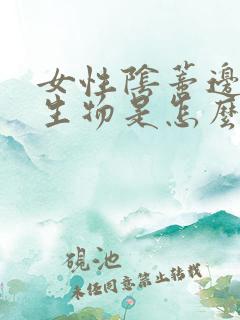 女性陰蒂邊
生物是怎麼
硯池
未經同意禁止轉載